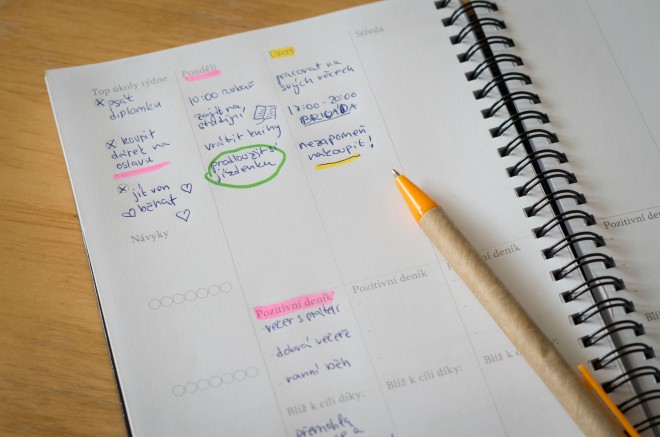 Top úkoly týdne
× psát
diplomku
× koupit
dárek na
oslavu
× jít ven
běhat
Návyky
Pondělí
10:00
zajít na
studijní
vrátit knihy
prodloužit si
jízdenku
Pozitivní deník
večer s přáteli
dobrá večeře
ranní běh
Blíž k cíli díky:
přemohla
Úterý
pracovat na
svých věcech
17:00-20:00
BRIGÁDA
nezapomeň
nakoupit!
Pozitivní deník
Blíž k cíli díky:
Středa
Pozitivní deník
Blíž k cíli díky:
Pozitivní deník